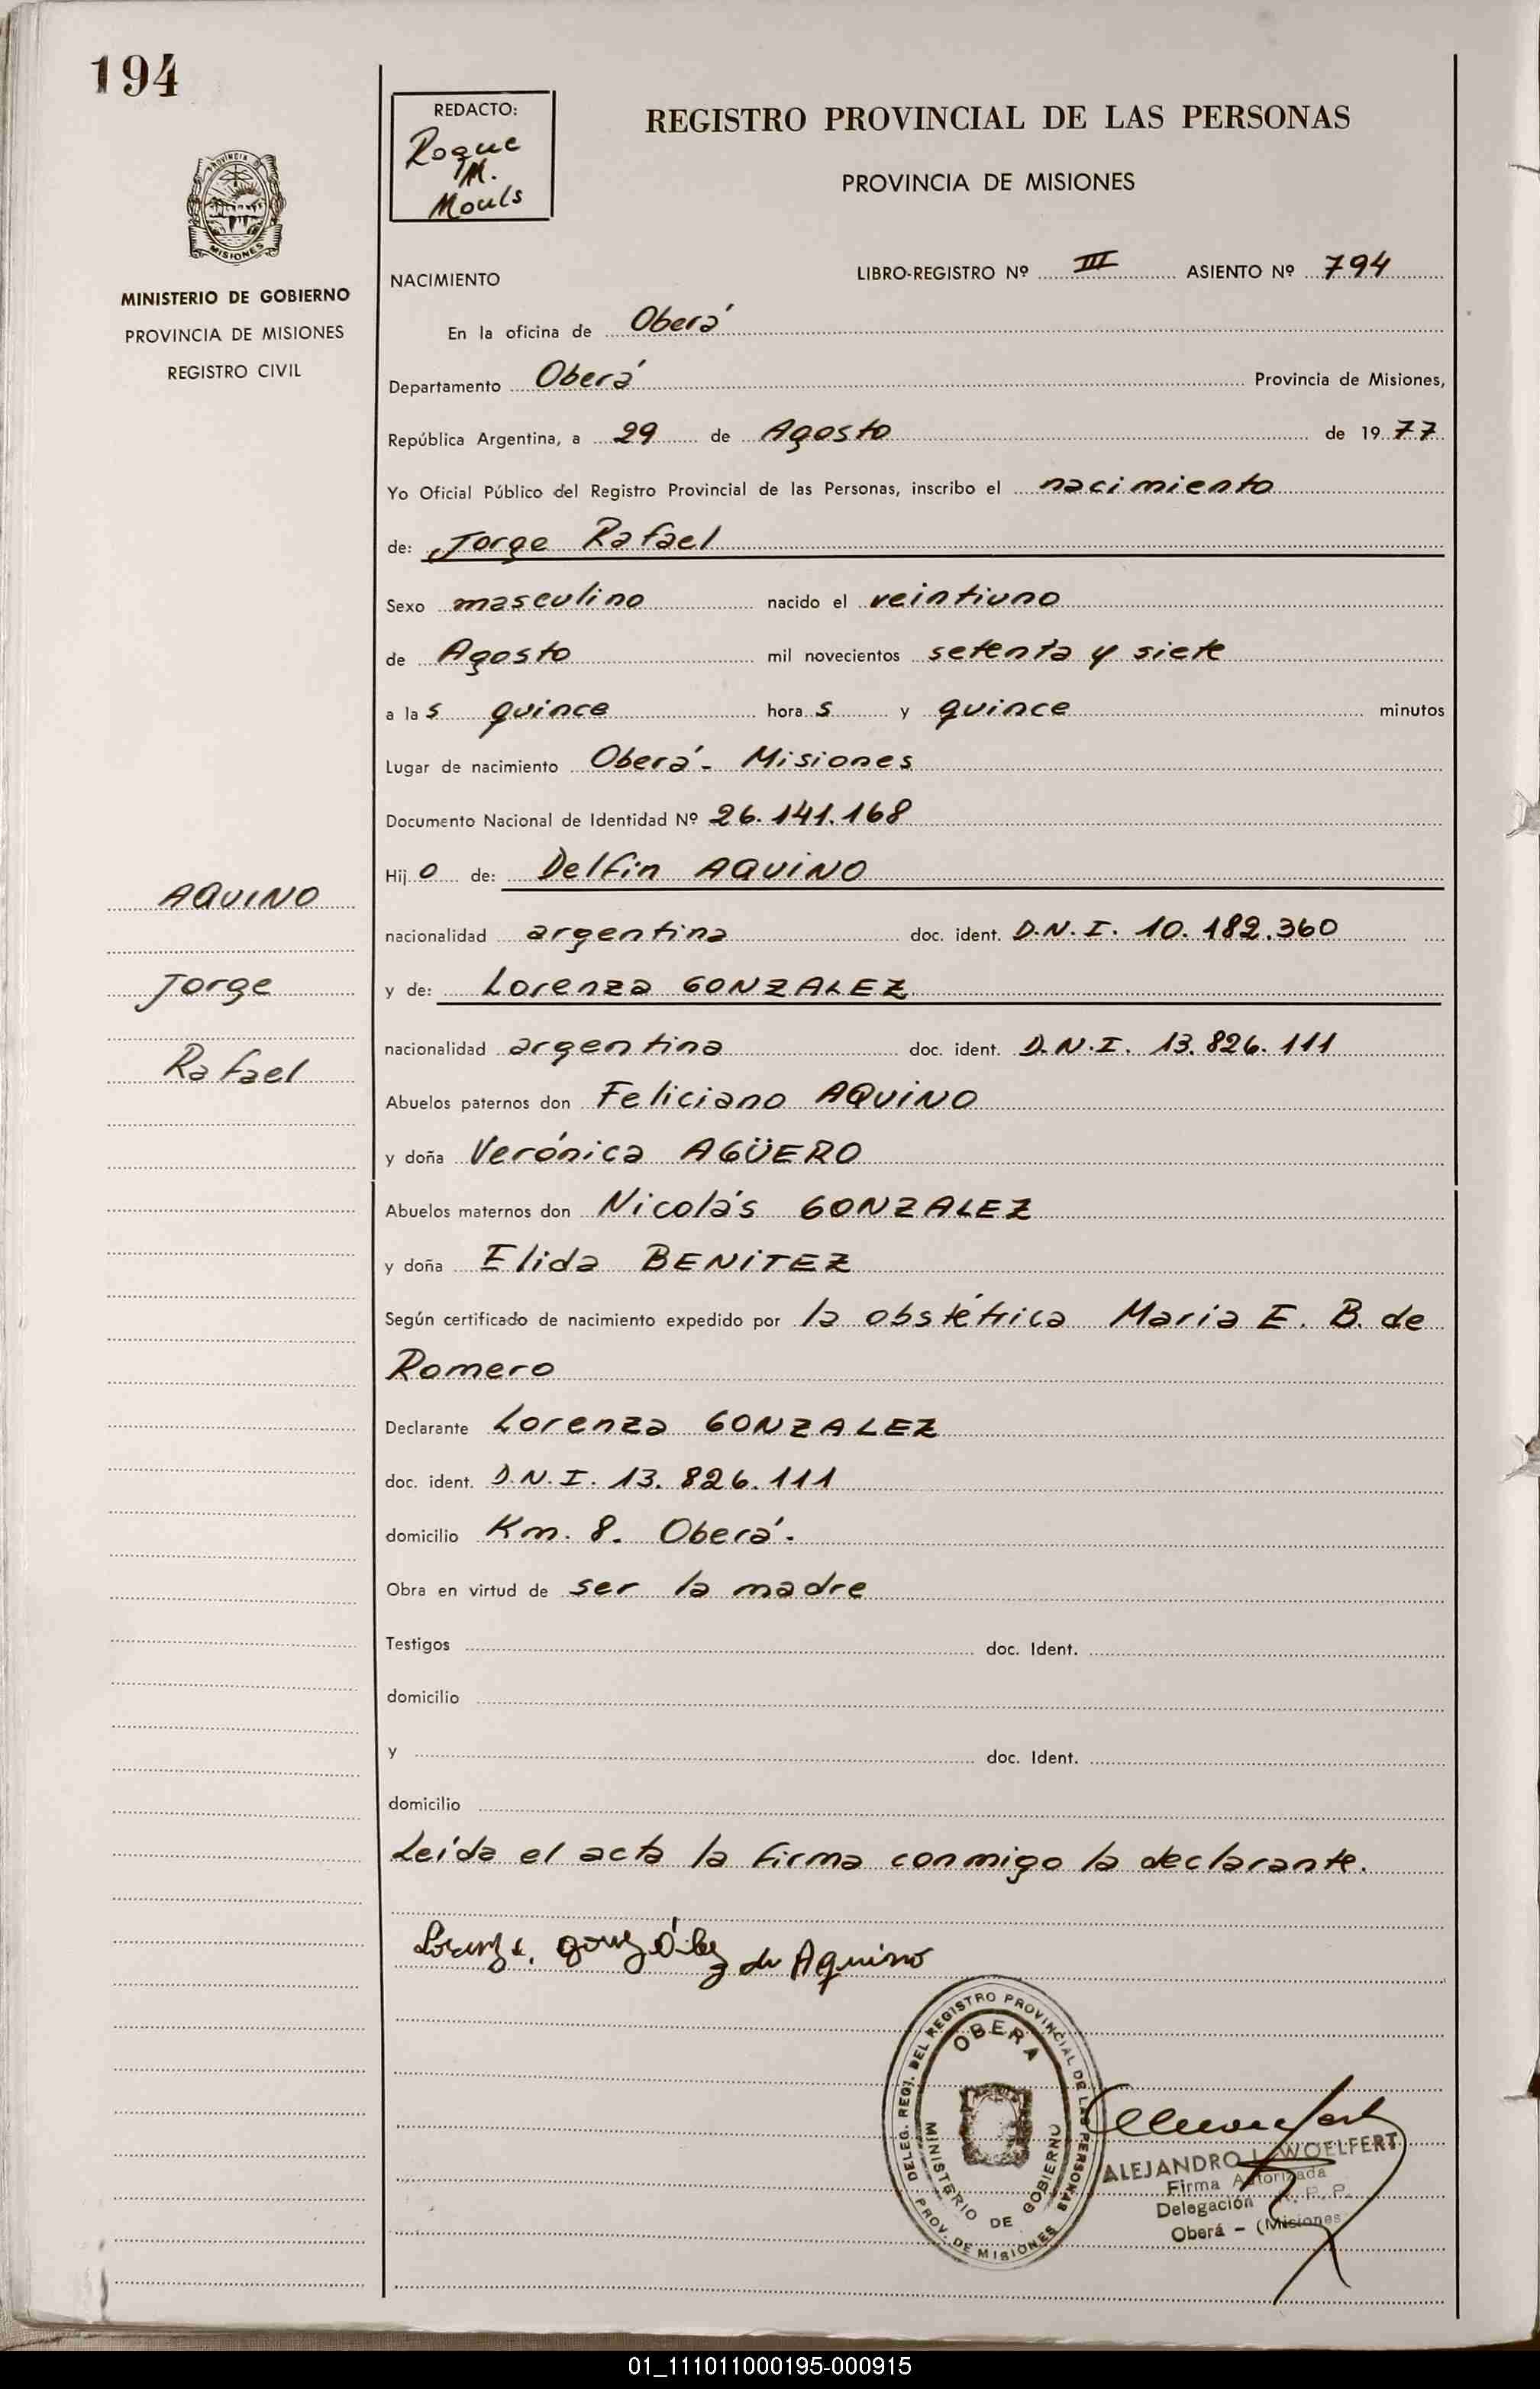 194
REDACTO:
Roque
M.
Mouls
REGISTRO PROVINCIAL DE LAS PERSONAS
PROVINCIA DE MISIONES
PROVINCIA D
MISIONES
MINISTERIO DE GOBIERNO
PROVINCIA DE MISIONES
REGISTRO CIVIL
NACIMIENTO
LIBRO-REGISTRO Nº III ASIENTO Nº 794
En la oficina de Oberá
Departamento Oberá Provincia de Misiones,
República Argentina, a 29 de Agosto de 1977
Yo Oficial Público del Registro Provincial de las Personas, inscribo el nacimiento
de: Jorge Rafael
Sexo masculino nacido el veintiuno
de Agosto mil novecientos setenta y siete
a las quince horas y quince minutos
Lugar de nacimiento Oberá - Misiones
Documento Nacional de Identidad Nº 26.141.168
Hijo de: Delfin AQUiNO
AQUINO
nacionalidad argentina doc. ident. D.N.I. 10.182.360
Jorge
y de: Lorenza GONZALEZ
Rafael
nacionalidad argentina doc. ident. D.N.I. 13.826.111
Abuelos paternos don Feliciano AQUiNO
y doña Verónica AGÜERO
Abuelos maternos don Nicolás GONZALEZ
y doña Elida BENiTEZ
Según certificado de nacimiento expedido por la obstétrica Maria E. B. de
Romero
Declarante Lorenza GONZALEZ
doc. ident. D.N.I. 13.826.111
domicilio Km. 8. Oberá.
Obra en virtud de ser la madre
Testigos doc. Ident.
domicilio
y doc. Ident.
domicilio
Leída el acta la firma conmigo la declarante.
Lorenza González de Aquino
DELEG. REGI. DEL REGISTRO PROVINCIAL DE LAS PERSONAS
OBERA
MINISTERIO DE GOBIERNO
PROV. DE MISIONES
ALEJANDRO L. WOELFERT
Firma Autorizada
Delegación R. P. P.
Oberá - (Misiones
01_111011000195-000915